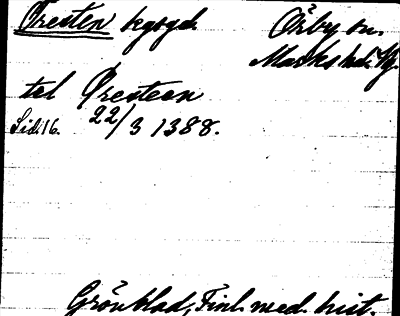 Öresten bygd. Örby sn.
Marks hd. Vg.
tel Øresteen
Sid. 16. 22/3 1388.
Grönblad, Finl. med. hist.